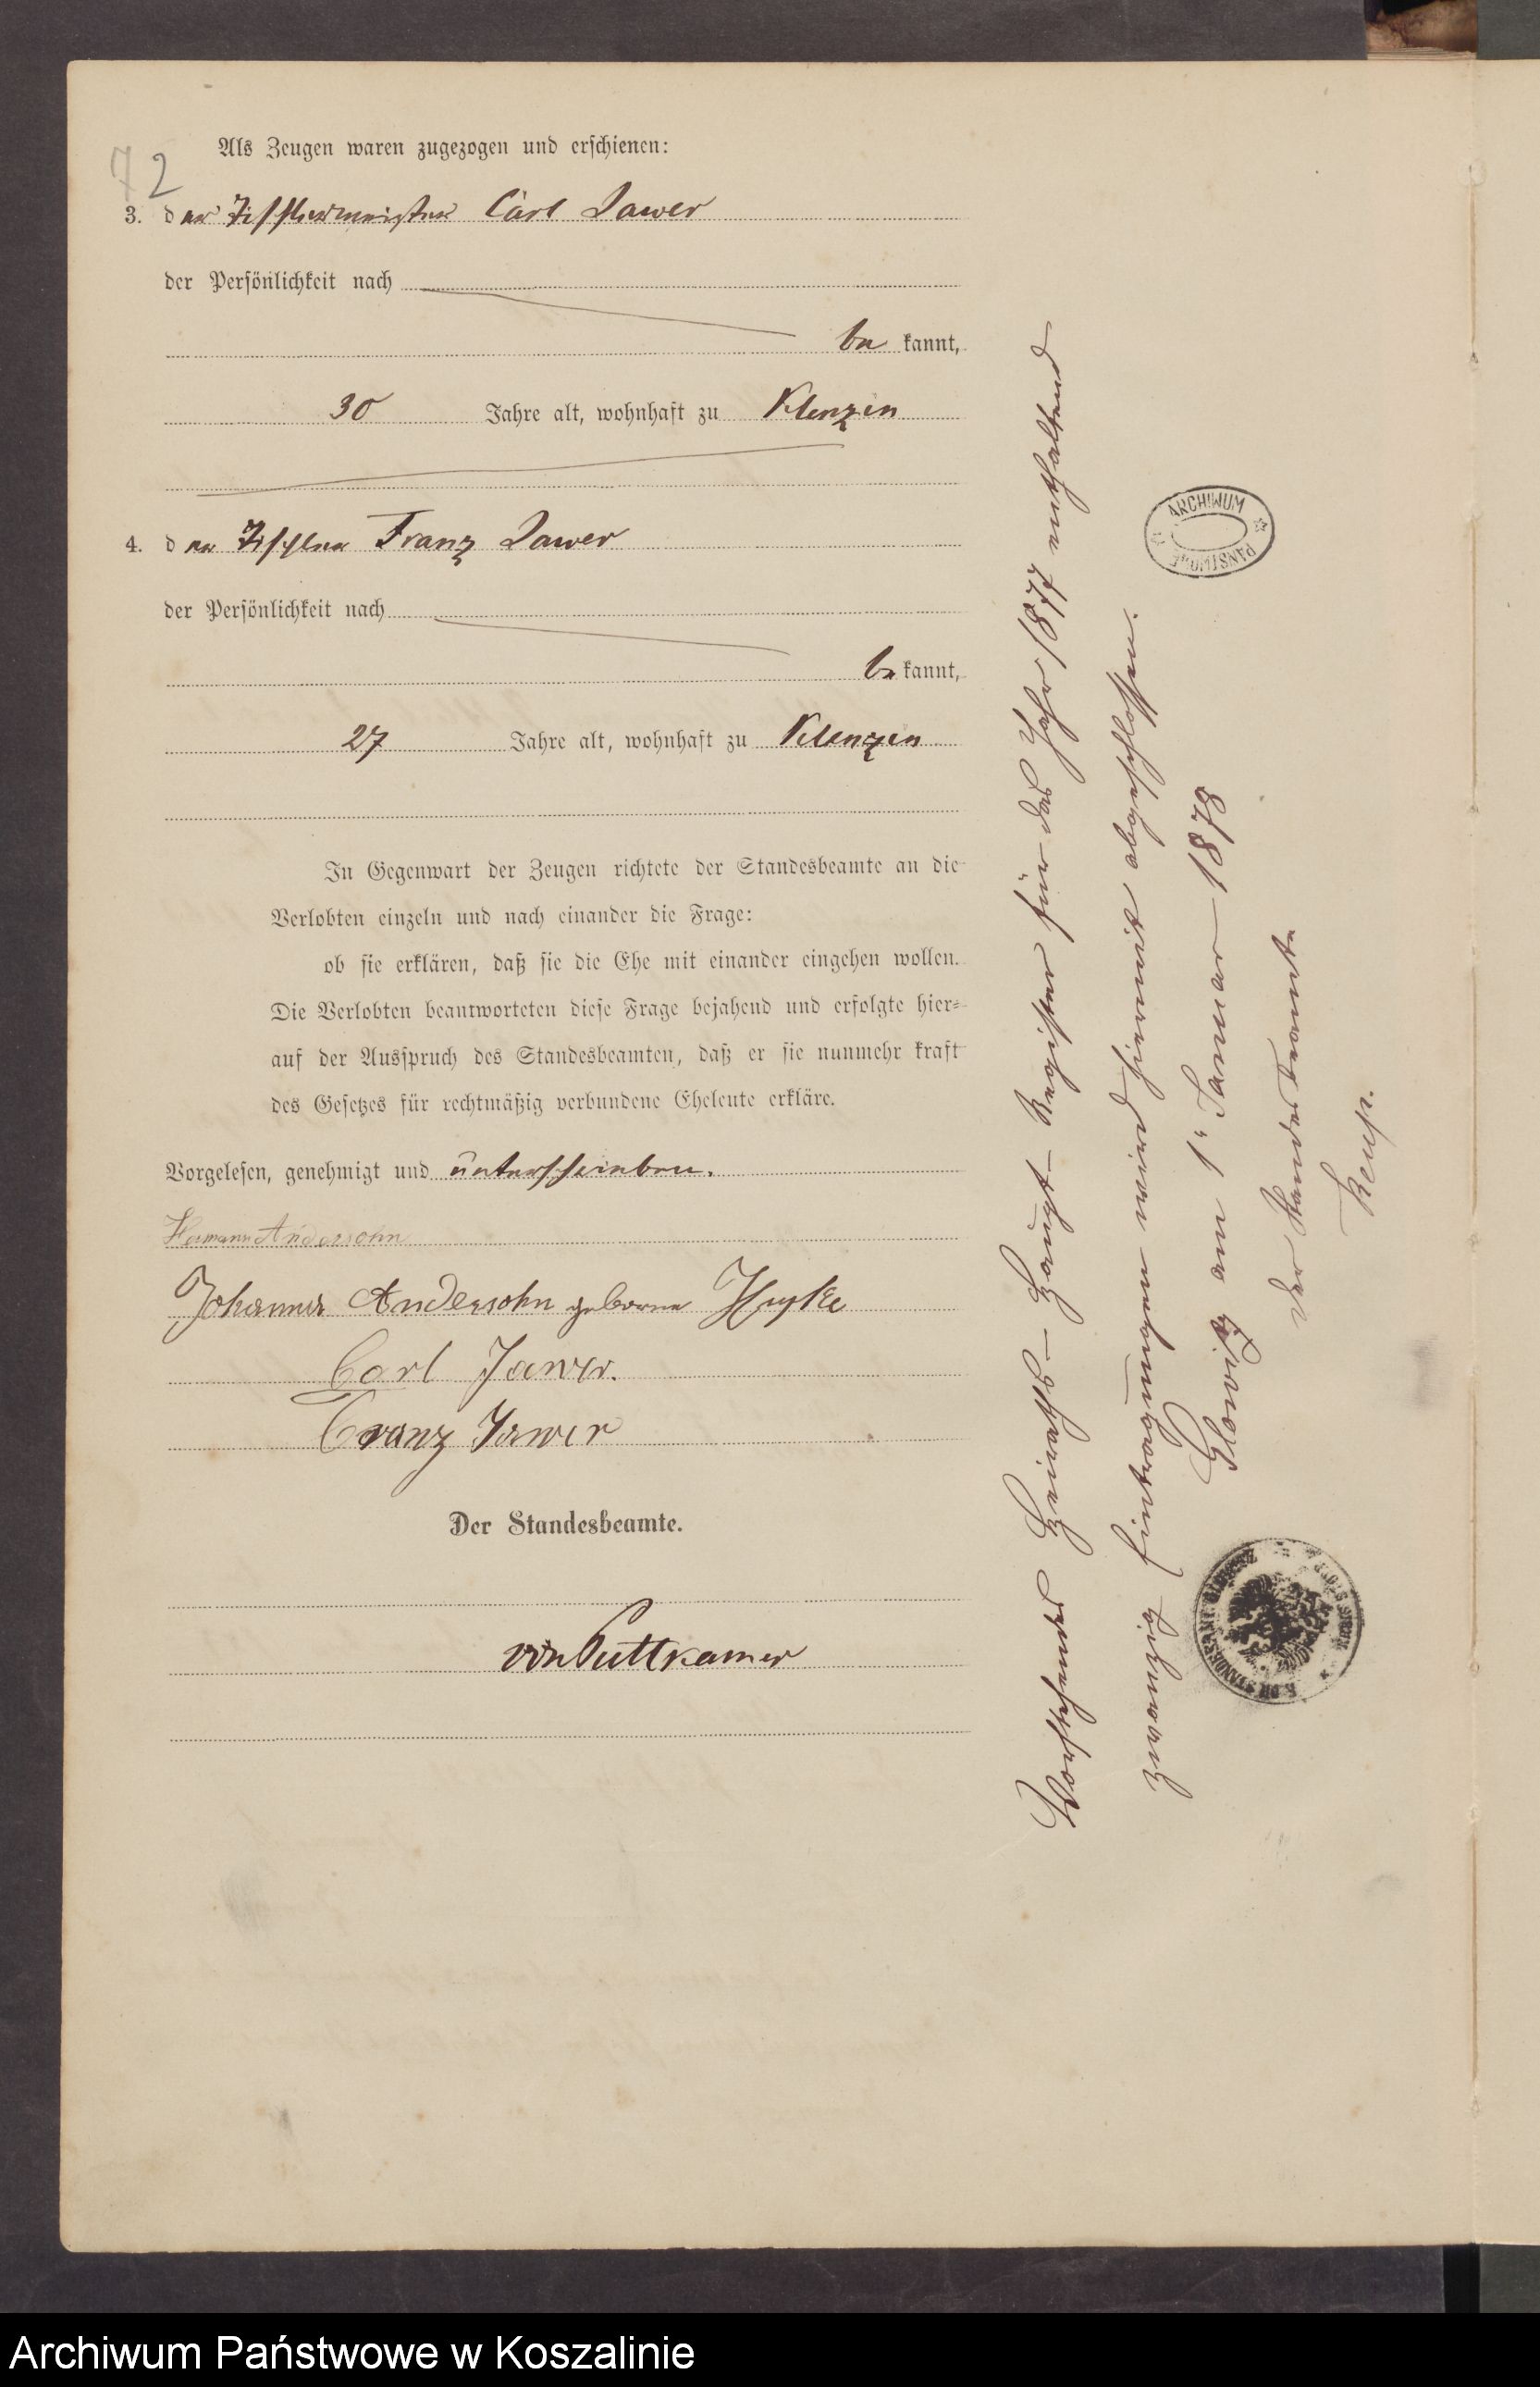 72
Als Zeugen waren zugezogen und erschienen:
3. der Tischlermeister Carl Jawer
der Persönlichkeit nach
be kannt,
30 Jahre alt, wohnhaft zu Klenzin
4. der Tischler Franz Jawer
der Persönlichkeit nach
be kannt,
27 Jahre alt, wohnhaft zu Klenzin
In Gegenwart der Zeugen richtete der Standesbeamte an die
Verlobten einzeln und nach einander die Frage:
ob sie erklären, daß sie die Ehe mit einander eingehen wollen.
Die Verlobten beantworteten diese Frage bejahend und erfolgte hier-
auf der Ausspruch des Standesbeamten, daß er sie nunmehr kraft
des Gesetzes für rechtmäßig verbundene Eheleute erkläre.
Vorgelesen, genehmigt und unterschrieben.
Hermann Andersohn
Johanna Andersohn geborene
Carl Jawer.
Franz Jawer
Der Standesbeamte.
von Puttkamer
Vorstehendes Heiraths-Haupt-Register für das Jahr 1877 enthaltend
zwanzig Eintragungen wird hiermit abgeschlossen.
am 1. Januar 1878
Der Standesbeamte
ARCHIWUM PAŃSTWOWE
Archiwum Państwowe w Koszalinie